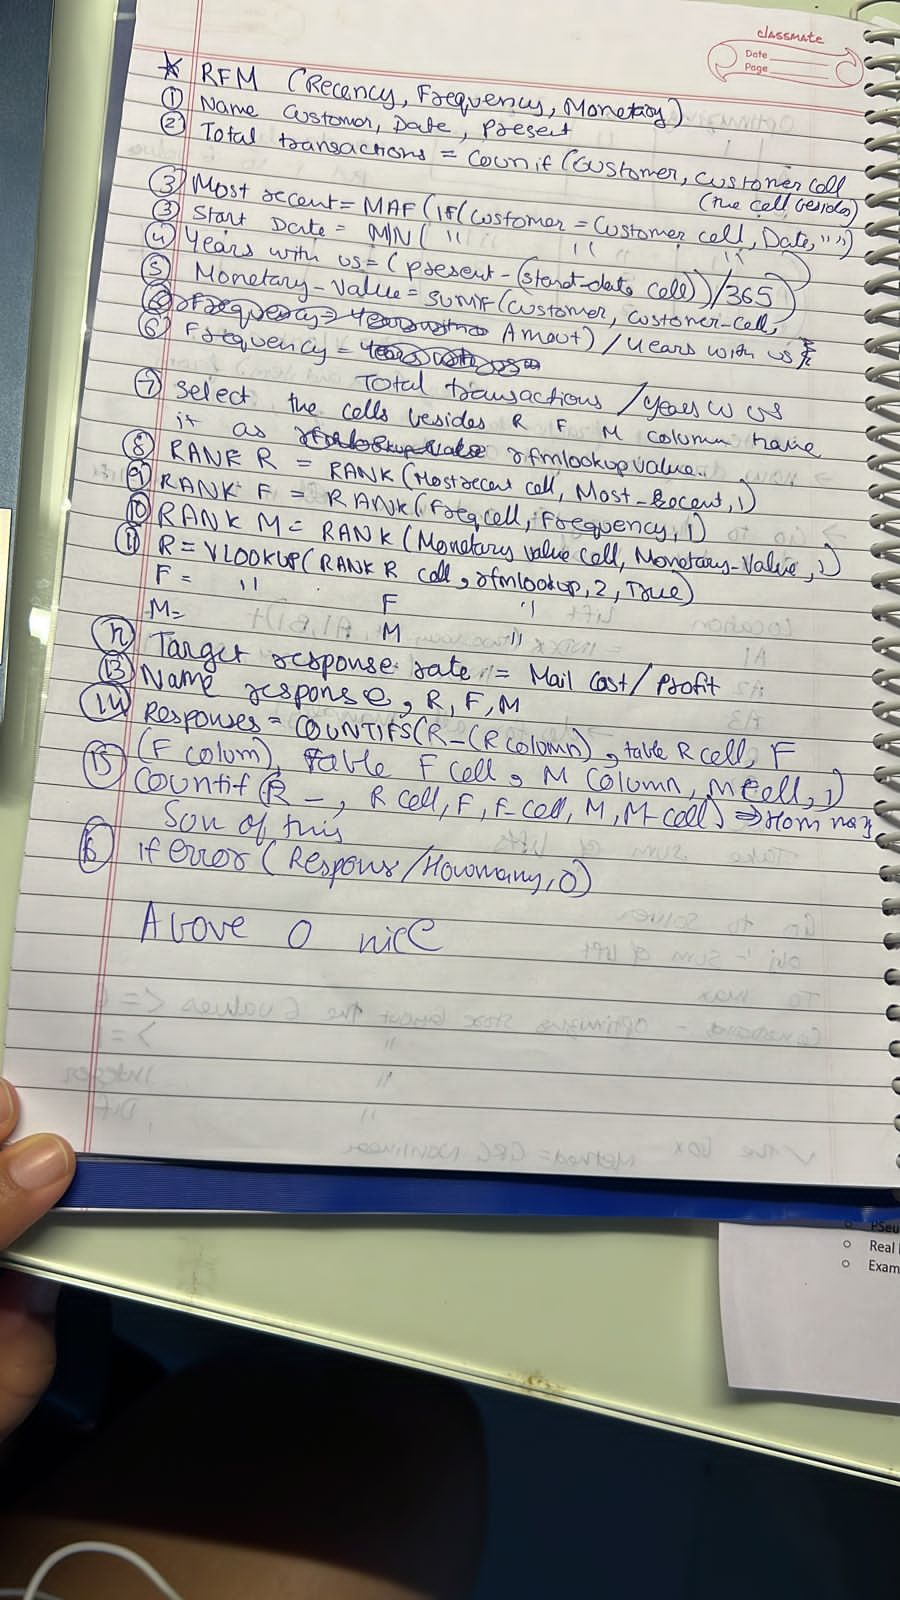 classmate
Date
Page
* RFM (Recency, Frequency, Monetary)
① Name Customer, Date, Present
② Total transactions = Counif (Customer, customer cell
(the cell besides)
③ Most recent = MAF (IF(Customer = Customer cell, Date, "")
③ Start Date = MIN( " " "
④ Years with us = (present - (start-date cell))/365
⑤ Monetary-Value = SUMIF (Customer, Customer-cell,
Amout) / years with us
⑥ Frequency =
Total transactions / years w us
⑦ Select the cells besides R F M column name
it as rfmlookupvalue.
⑧ RANK R = RANK (Mostrecent cell, Most-Recent, 1)
⑨ RANK F = RANK (Freq cell, Frequency, 1)
⑩ RANK M = RANK (Monetary value cell, Monetary-Value, 1)
⑪ R = VLOOKUP (RANK R cell, rfmlookup, 2, True)
F = " F "
M= M "
Target response rate = Mail Cost / Profit
⑬ Name response, R, F, M
⑭ Responses = COUNTIFS(R-(R column), table R cell, F
(F colum), table F cell, M Column, M cell, 1)
⑮ Countif (R-, R cell, F, F-cell, M, M-cell) ⇒
Sum of this
If error (Respons/Howmany, 0)
Above 0 nice
Real
Exam